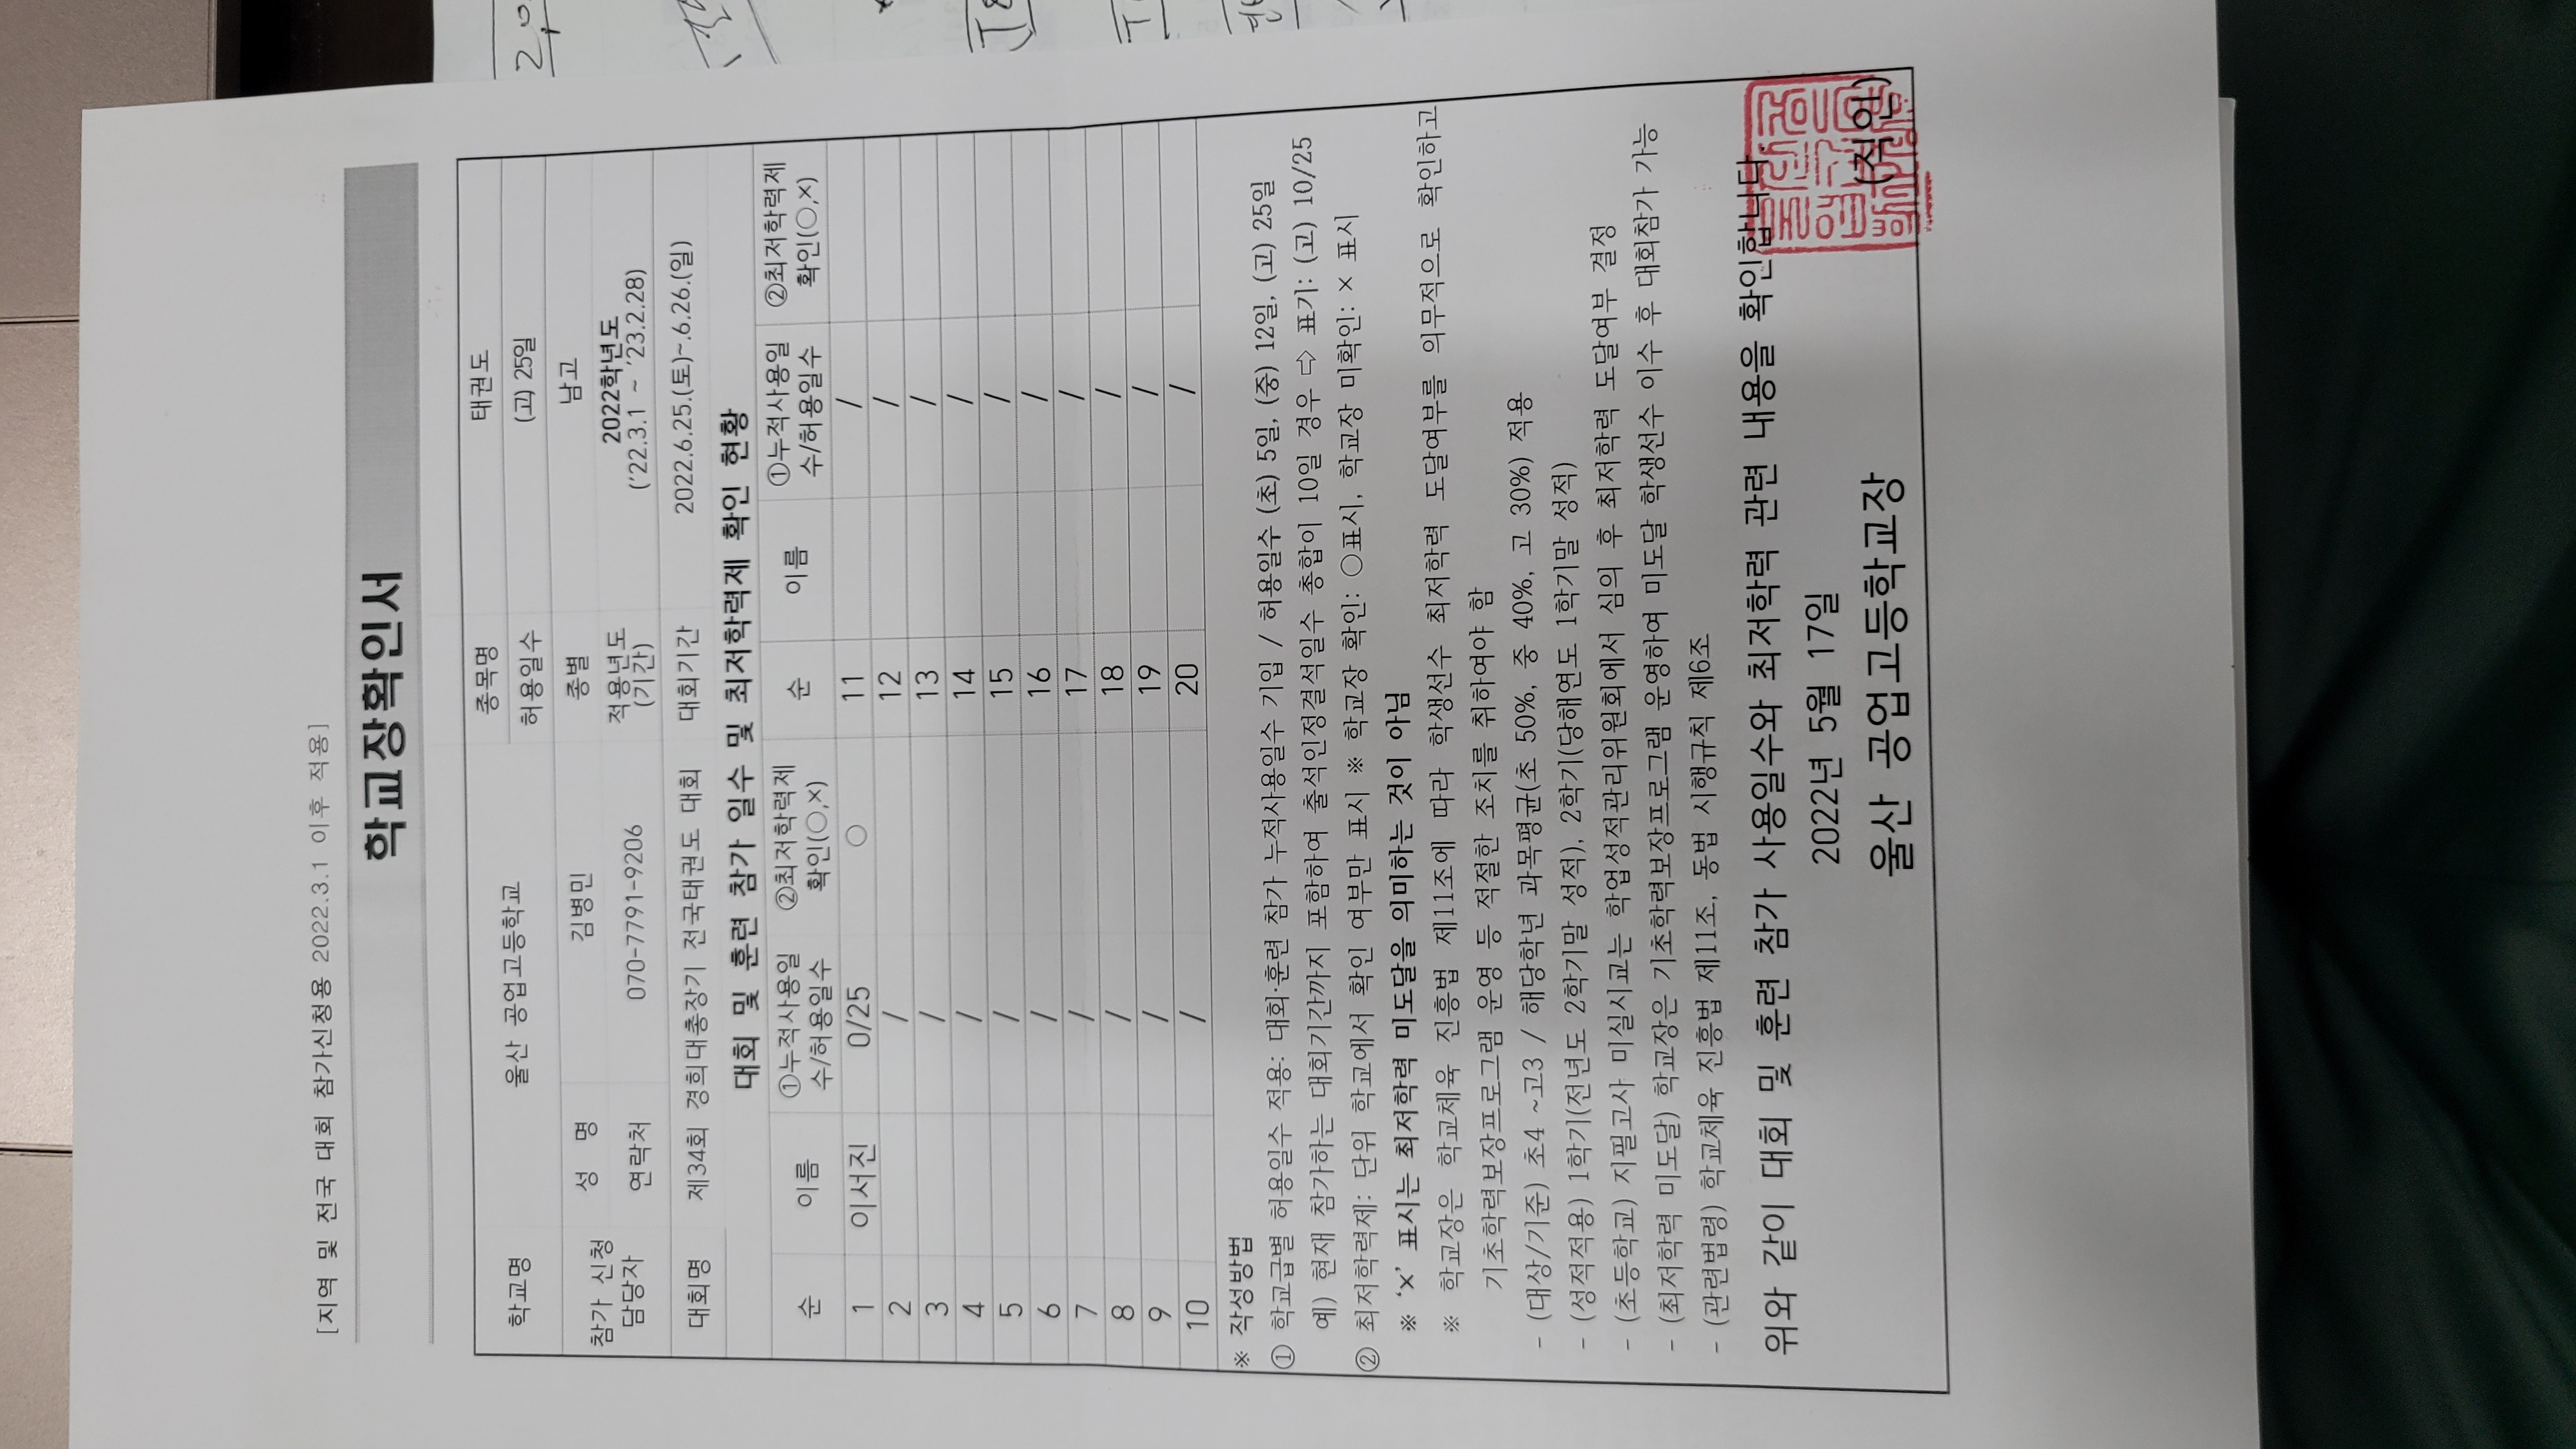 [지역 및 전국 대회 참가신청용 2022.3.1 이후 적용]
학교장확인서
학교명 울산 공업고등학교 종목명 태권도
허용일수 (고) 25일
참가 신청 담당자 성 명 김병민 종별 남고
연락처 070-7791-9206 적용년도 (기간) 2022학년도 ('22.3.1 ~ '23.2.28)
대회명 제34회 경희대총장기 전국태권도 대회 대회기간 2022.6.25.(토)~.6.26.(일)
대회 및 훈련 참가 일수 및 최저학력제 확인 현황
순 이름 ①누적사용일수/허용일수 ②최저학력제 확인(○,×) 순 이름 ①누적사용일수/허용일수 ②최저학력제 확인(○,×)
1 이서진 0/25 ○ 11 /
2 / 12 /
3 / 13 /
4 / 14 /
5 / 15 /
6 / 16 /
7 / 17 /
8 / 18 /
9 / 19 /
10 / 20 /
※ 작성방법
① 학교급별 허용일수 적용: 대회·훈련 참가 누적사용일수 기입 / 허용일수 (초) 5일, (중) 12일, (고) 25일
예) 현재 참가하는 대회기간까지 포함하여 출석인정결석일수 총합이 10일 경우 ⇨ 표기: (고) 10/25
② 최저학력제: 단위 학교에서 확인 여부만 표시 ※ 학교장 확인: ○표시, 학교장 미확인: × 표시
※ '×' 표시는 최저학력 미도달을 의미하는 것이 아님
※ 학교장은 학교체육 진흥법 제11조에 따라 학생선수 최저학력 도달여부를 의무적으로 확인하고
기초학력보장프로그램 운영 등 적절한 조치를 취하여야 함
- (대상/기준) 초4 ~고3 / 해당학년 과목평균(초 50%, 중 40%, 고 30%) 적용
- (성적적용) 1학기(전년도 2학기말 성적), 2학기(당해연도 1학기말 성적)
- (초등학교) 지필고사 미실시교는 학업성적관리위원회에서 심의 후 최저학력 도달여부 결정
- (최저학력 미도달) 학교장은 기초학력보장프로그램 운영하여 미도달 학생선수 이수 후 대회참가 가능
- (관련법령) 학교체육 진흥법 제11조, 동법 시행규칙 제6조
위와 같이 대회 및 훈련 참가 사용일수와 최저학력 관련 내용을 확인합니다
2022년 5월 17일
울산 공업고등학교장 (직인)